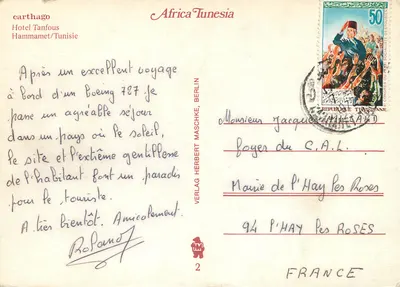 carthago
Hotel Tanfous
Hammamet/Tunisie
Africa Tunesia
50
REPUBLIQUE TUNISIENNE
Après un excellent voyage
à bord d'un boeing 727 Je
passe un agréable séjour
dans un pays où le soleil,
le site et l'extême gentillesse
de l'habitant font un paradis
pour le touriste.
A très bientôt. Amicalement.
Roland
VERLAG HERBERT MASCHKE, BERLIN
2
Monsieur Jacques
foyer du C.A.L.
Mairie de l'Haÿ les Roses
94 l'HAY les ROSES
FRANCE